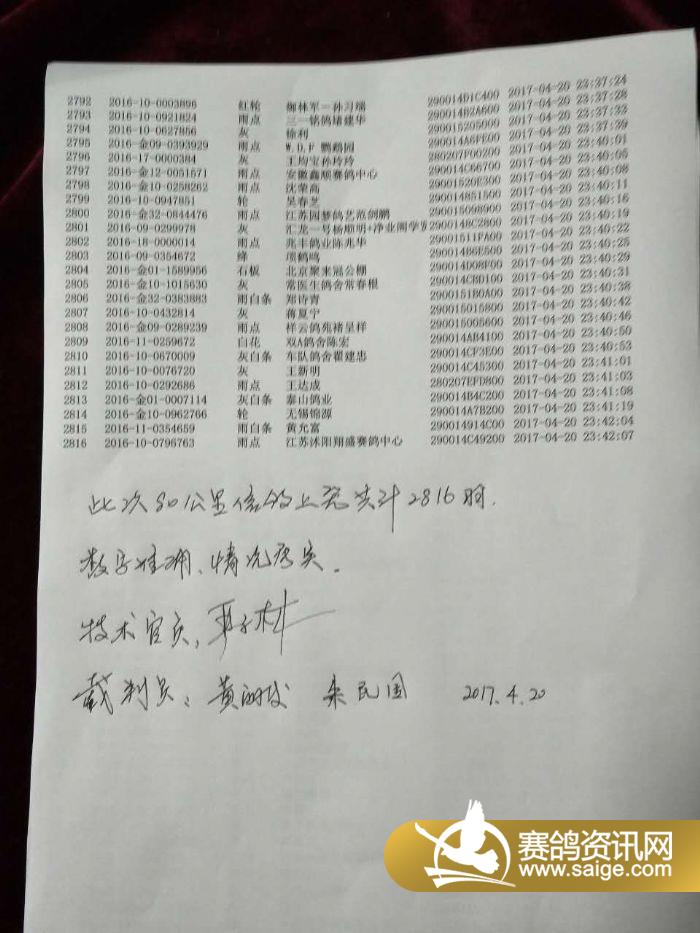 2792 2016-10-0003896 红轮 御林军－孙习瑞 290014B1C400 2017-04-20 23:37:24
2793 2016-10-0921824 雨点 三一铭鸽堵建华 290014B2A600 2017-04-20 23:37:28
2794 2016-10-0627856 灰 徐利 290015205000 2017-04-20 23:37:33
2795 2016-金09-0393929 雨点 W.D.F 鹦鹉园 290014A6FE00 2017-04-20 23:37:39
2796 2016-17-0000384 灰 王均宝孙玲玲 280207F00200 2017-04-20 23:40:01
2797 2016-金12-0051571 雨点 安徽鑫顺赛鸽中心 290014C66700 2017-04-20 23:40:05
2798 2016-金10-0258262 雨点 沈荣高 29001520E300 2017-04-20 23:40:08
2799 2016-10-0947851 轮 吴春芝 290014851500 2017-04-20 23:40:11
2800 2016-金32-0844476 雨点 江苏园梦鸽艺范剑鹏 290015098900 2017-04-20 23:40:16
2801 2016-09-0299978 灰 汇龙一号杨顺明+净业阁学 290014BC2800 2017-04-20 23:40:19
2802 2016-18-0000014 雨点 兆丰鸽业陈兆华 29001511FA00 2017-04-20 23:40:22
2803 2016-09-0354672 绛 项鹤鸣 290014B6E500 2017-04-20 23:40:25
2804 2016-金01-1589956 石板 北京聚来冠公棚 290014D08F00 2017-04-20 23:40:29
2805 2016-金10-1015630 灰 常医生鸽舍常春根 290014CBD100 2017-04-20 23:40:31
2806 2016-金32-0383883 雨白条 郑诗青 2900151B0A00 2017-04-20 23:40:38
2807 2016-10-0432814 灰 蒋夏宁 290015015800 2017-04-20 23:40:42
2808 2016-金09-0289239 雨点 祥云鸽苑褚呈祥 290015005600 2017-04-20 23:40:46
2809 2016-11-0259672 白花 双A鸽舍陈宏 290014AB4100 2017-04-20 23:40:50
2810 2016-10-0670009 灰白条 车队鸽舍瞿建忠 290014CF3E00 2017-04-20 23:40:53
2811 2016-10-0076720 灰 王新明 290014C45300 2017-04-20 23:41:01
2812 2016-10-0292686 雨点 王达成 280207EFD800 2017-04-20 23:41:03
2813 2016-金01-0007114 灰白条 泰山鸽业 290014B4C200 2017-04-20 23:41:08
2814 2016-金10-0962766 轮 无锡锦源 290014A7B200 2017-04-20 23:41:19
2815 2016-11-0354659 雨白条 黄允富 290014914C00 2017-04-20 23:42:04
2816 2016-10-0796763 雨点 江苏沭阳翔盛赛鸽中心 290014C49200 2017-04-20 23:42:07
此次80公里信鸽上笼共计2816羽.
数字准确、情况属实.
技术官员:
裁判员: 民国 2017.4.20
赛鸽资讯网
www.saige.com